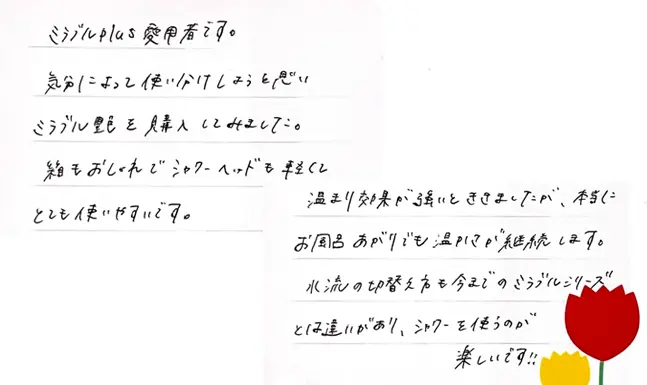 ミラブルplus愛用者です。
気分によって使い分けしようと思い
ミラブル艶を購入してみました。
箱もおしゃれでシャワーヘッドも軽くて
とても使いやすいです。
温まり効果が強いとききましたが、本当に
お風呂あがりでも温かさが継続します。
水流の切替え方も今までのミラブルシリーズ
とは違いがあり、シャワーを使うのが
楽しいです!!